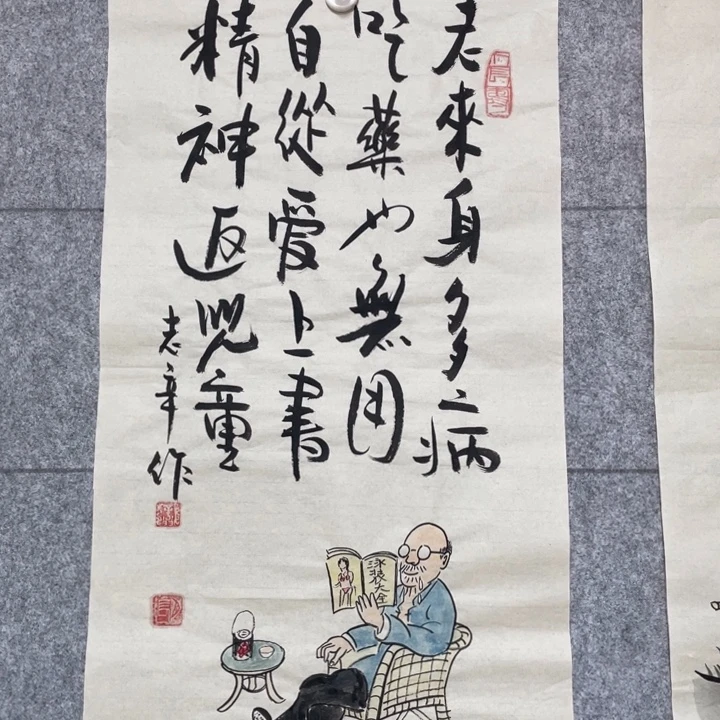 老來身多病
吃藥也無用
自從愛上書
精神返兒童
志章作
泳裝大全